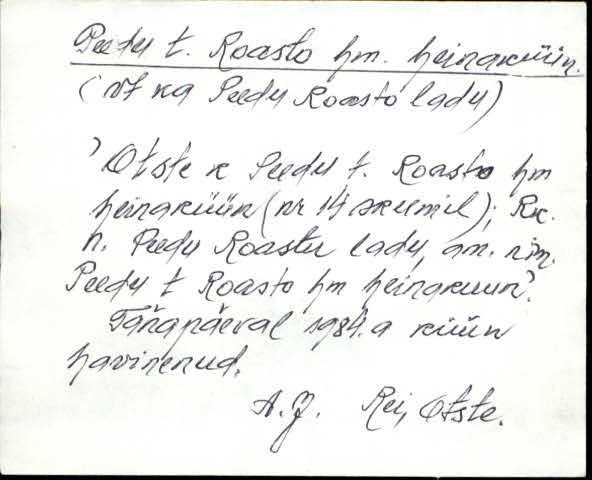 Peedu t. Roasto hm. heinaküün.
(vt ka Peedu Roasto ladu)
'Otste k Peedu t. Roasto hm
heinaküün (nr 14 skeemil); Rk.
n. Peedu Roastu lady, am. nim.
Peedu t Roasto hm heinakuun'.
Tänapäeval 1984.a küün
hävinenud.
A.J. Rei, Otste.